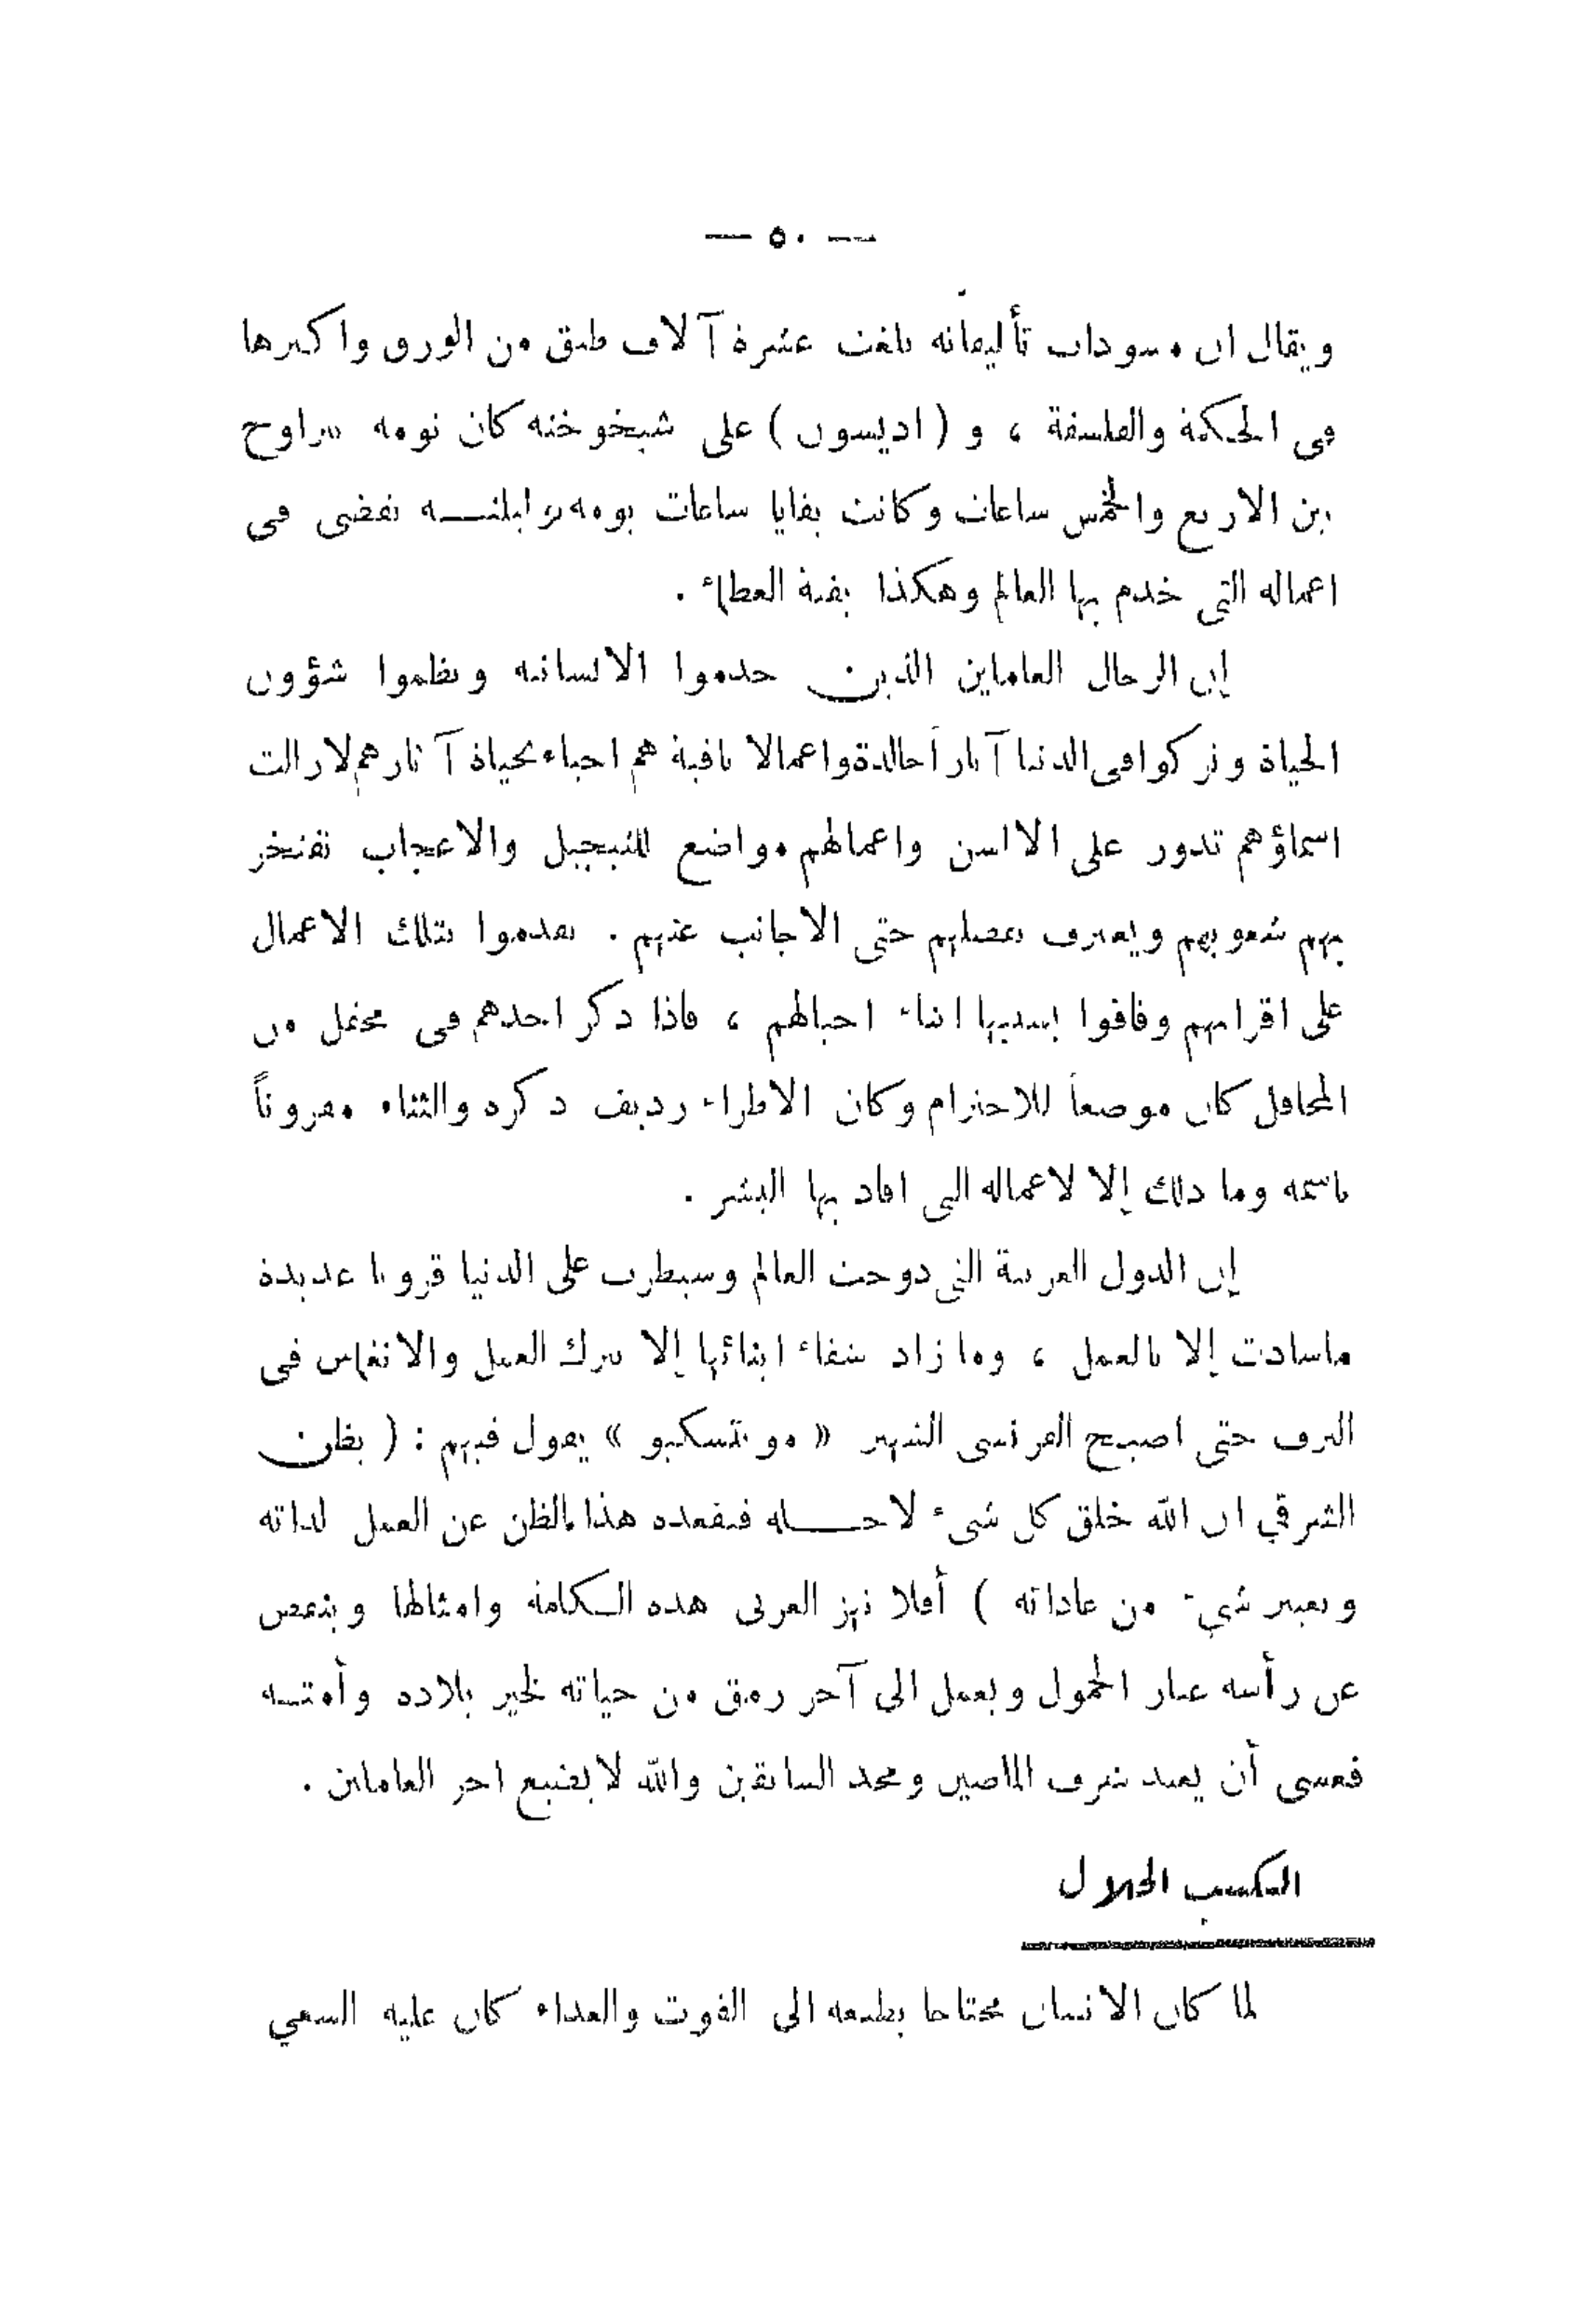 — ٥٠ —
ويقال ان مسودات تأليفاته بلغت عشرة آلاف طبق من الورق واكثرها
في الحكمة والفلسفة ، و ( اديسون ) على شيخوخته كان نومه يتراوح
بين الاربع والخمس ساعات وكانت بقايا ساعات يومه وليلته تقضى في
اعماله التي خدم بها العالم وهكذا بقية العظماء .
إن الرجال العاملين الذين خدموا الانسانية ونظموا شؤون
الحياة وتركوا في الدنيا آثاراً خالدة واعمالا باقية هم احياء بحياة آثارهم لازالت
اسماؤهم تدور على الالسن واعمالهم مواضع للتبجيل والاعجاب تفتخر
بهم شعوبهم ويعترف بفضلهم حتى الاجانب عنهم . تقدموا بتلك الاعمال
على اقرانهم وفاقوا بسببها ابناء اجيالهم ، فاذا ذكر احدهم في محفل من
المحافل كان موضعاً للاحترام وكان الاطراء رديف ذكره والثناء مقروناً
باسمه وما ذلك إلا لاعماله التي افاد بها البشر .
إن الدول العربية التي دوخت العالم وسيطرت على الدنيا قرونا عديدة
ماسادت إلا بالعمل ، وما زاد شقاء ابنائها إلا بترك العمل والانغماس في
الترف حتى اصبح الفرنسي الشهير « مونتسكيو » يقول فيهم : ( يظن
الشرقي ان الله خلق كل شيء لاجله فيقعده هذا الظن عن العمل لذاته
وتغيير شيء من عاداته ) أفلا تهز العربي هذه الكلمة وامثالها وينفض
عن رأسه غبار الخمول ويعمل الى آخر رمق من حياته لخير بلاده وأمته
فعسى أن يعيد شرف الماضين ومجد السابقين والله لا يضيع اجر العاملين .
الكسب الحلال
لما كان الانسان محتاجا بطبعه الى القوت والغذاء كان عليه السعي